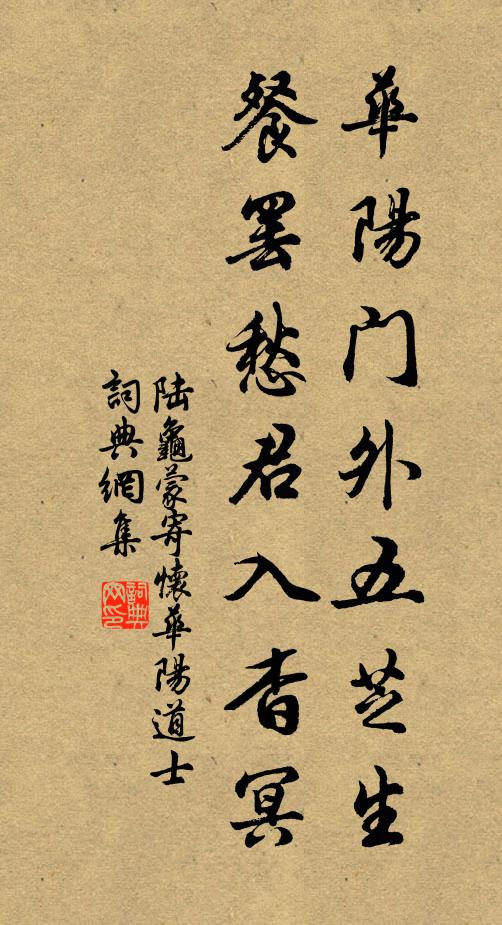 華陽門外五芝生
餐罢愁君入杳冥
陆龜蒙寄懷華陽道士
詞典網集
詞典
网印